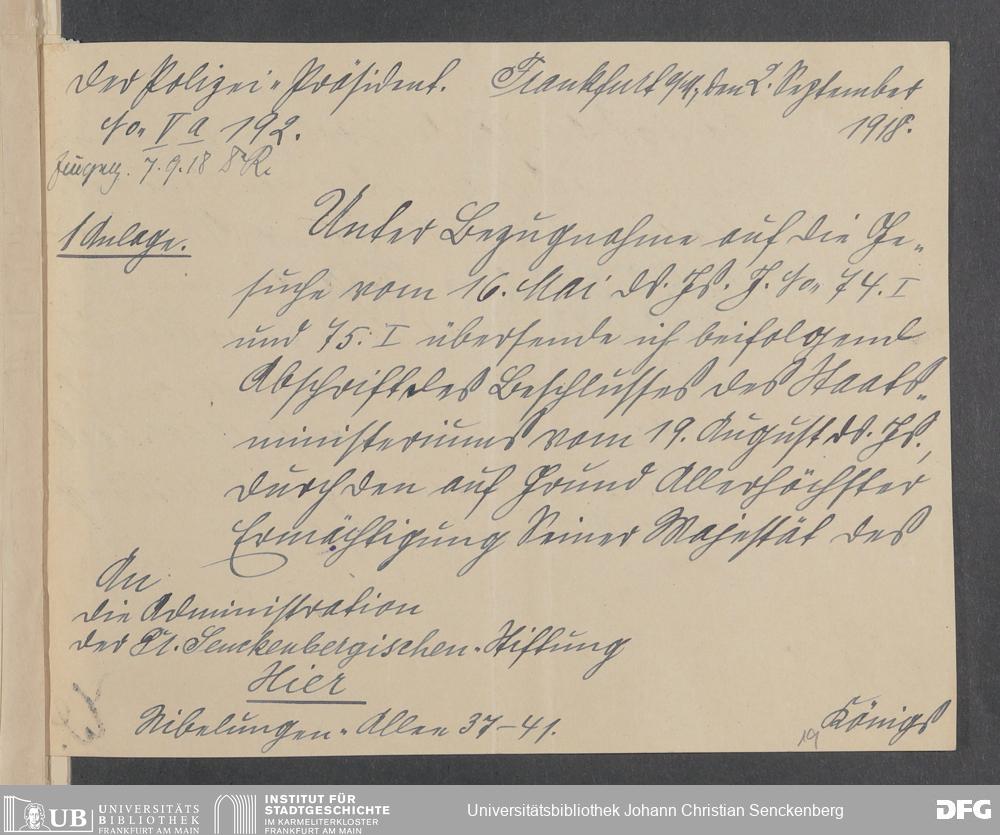 Der Polizei-Präsident. Frankfurt a/M., den 2. September
No. V a 192. 1918.
7.9.18
1 Anlage.
Unter Bezugnahme auf die Ge-
suche vom 16. Mai ds. Js. J. No. 74. I
und 75. I übersende ich beifolgend
Abschrift des Beschlusses des Staats-
ministeriums vom 19. August ds. Js.,
durch den auf Grund Allerhöchster
Ermächtigung Seiner Majestät des
An
die Administration
der Dr. Senckenbergischen-Stiftung
Hier
Nibelungen-Allee 37-41.
Königs
19
UB UNIVERSITÄTS
BIBLIOTHEK
FRANKFURT AM MAIN
INSTITUT FÜR
STADTGESCHICHTE
IM KARMELITERKLOSTER
FRANKFURT AM MAIN
Universitätsbibliothek Johann Christian Senckenberg
DFG